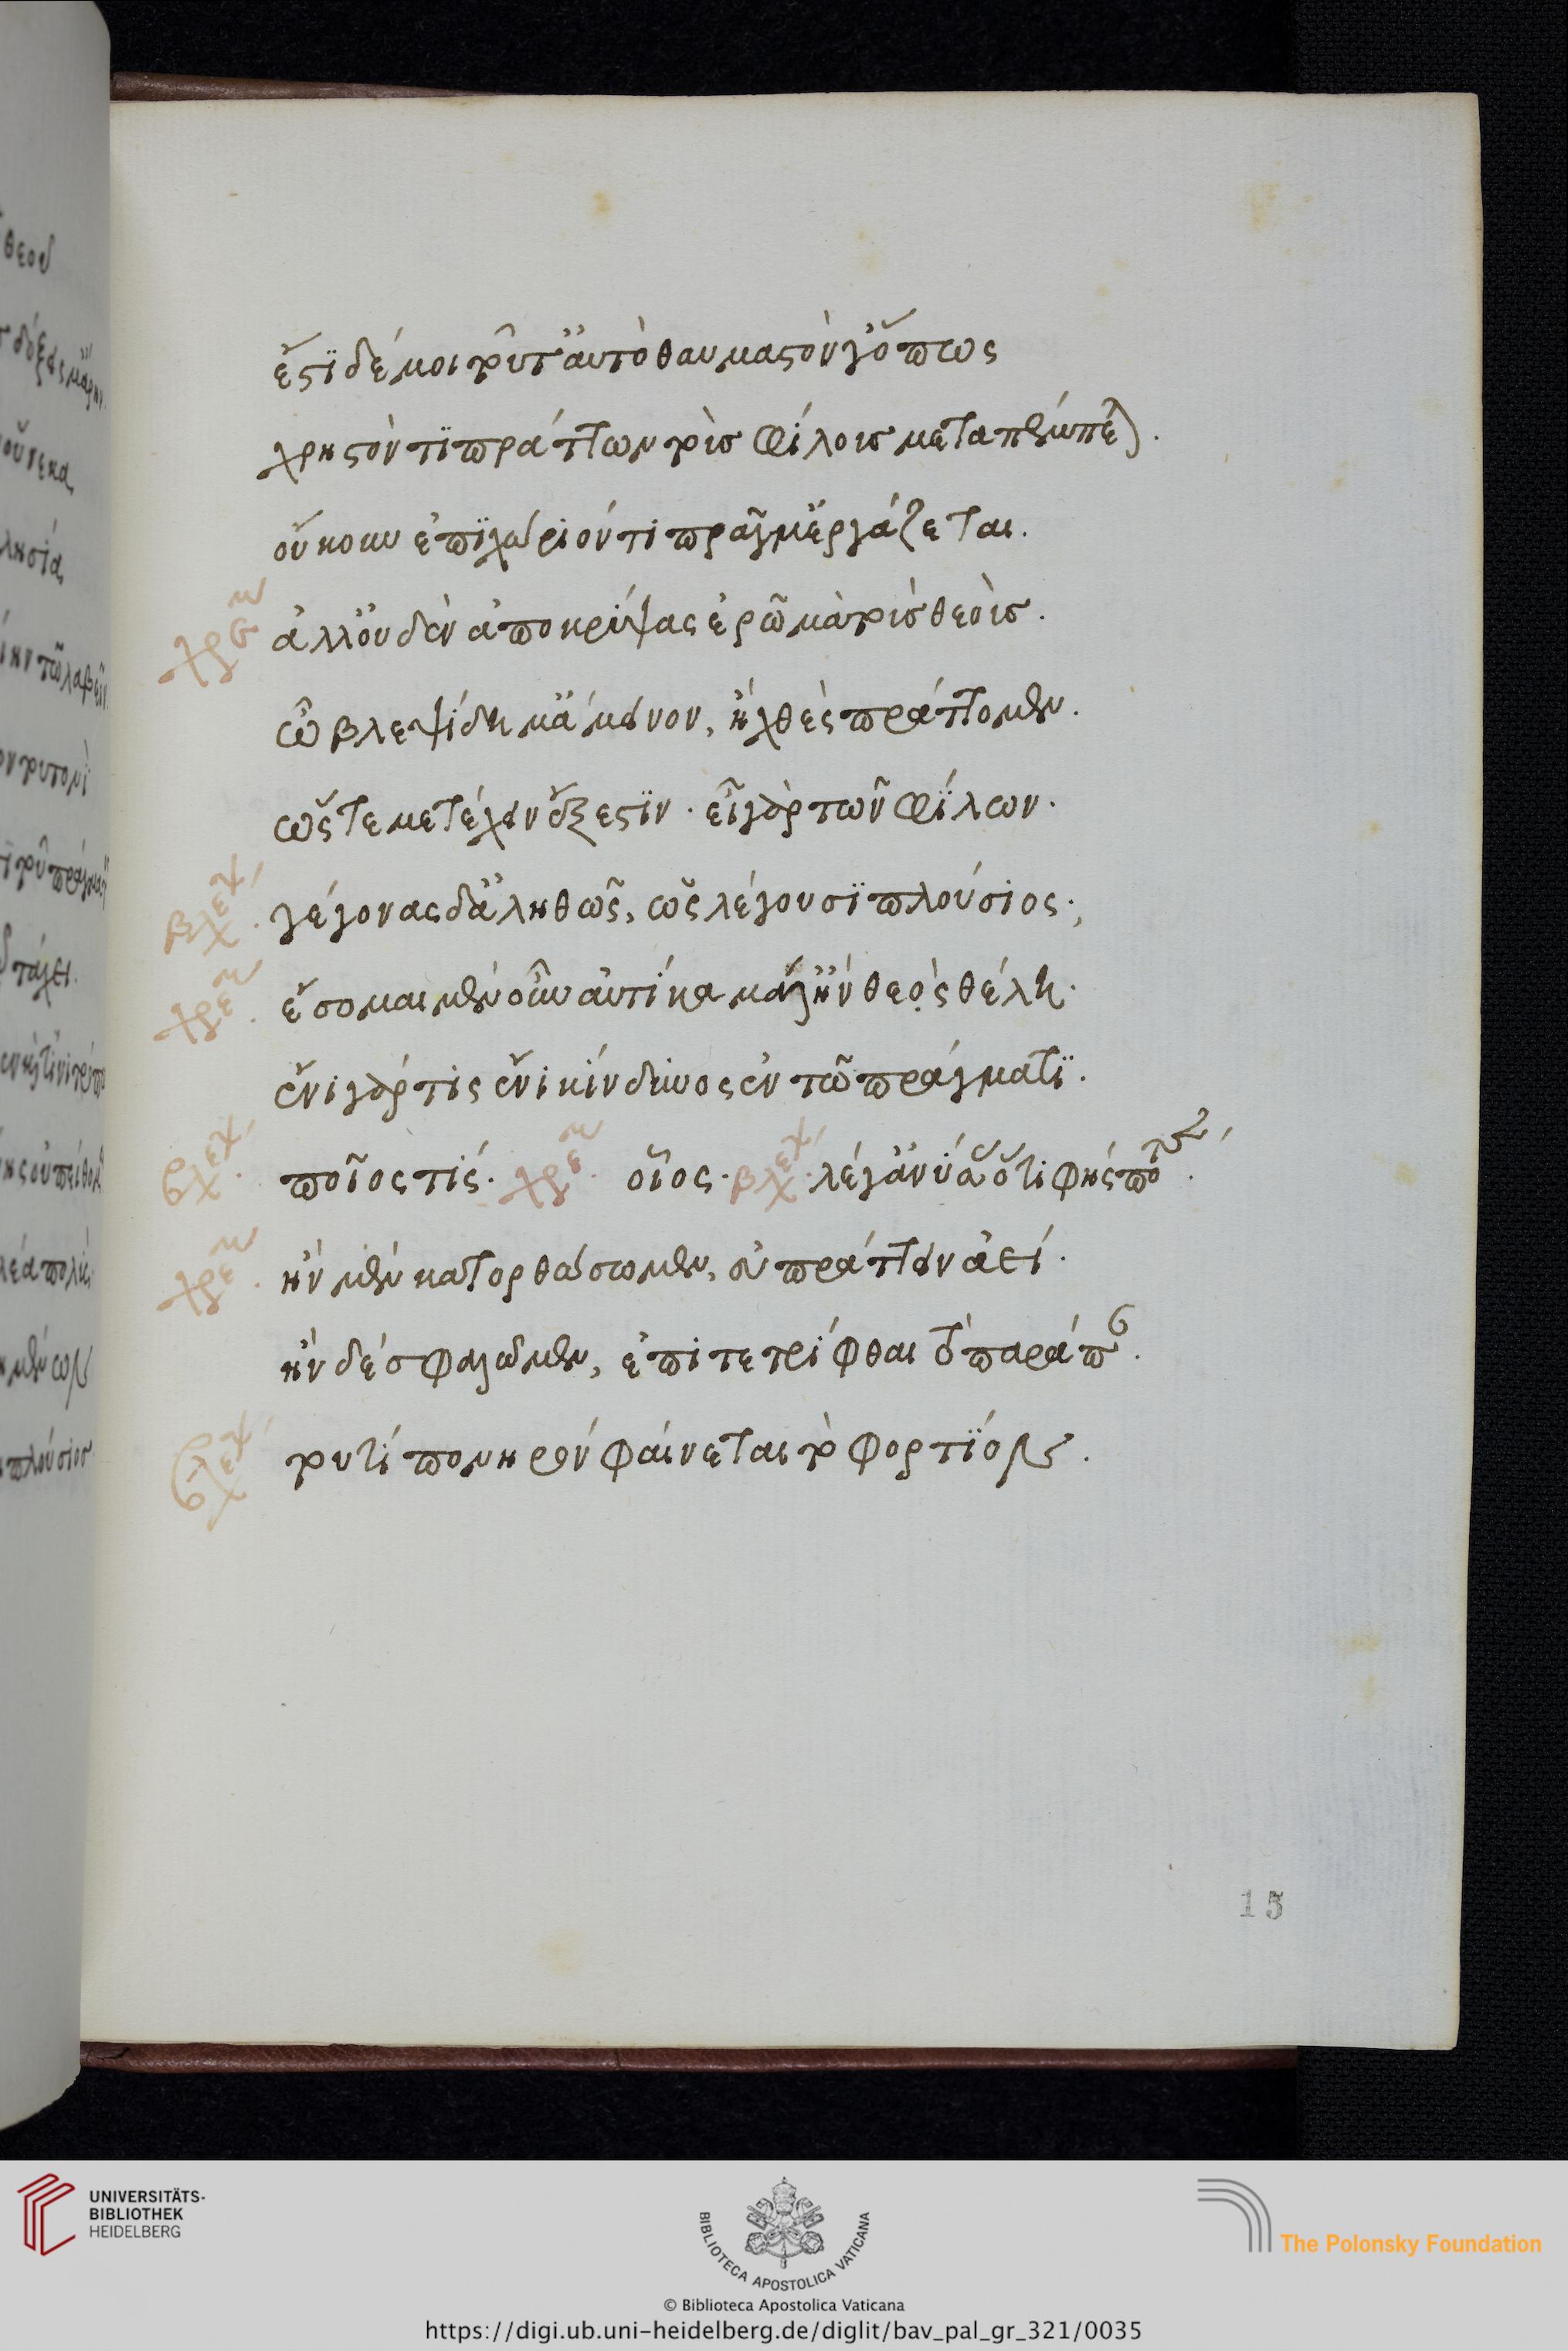 ἔστι δέ μοι τοῦτ' αὐτὸ θαυμαστὸν γ' ὅπως
χρηστόν τι πράττων τοὺς φίλους μεταπέμπεται.
οὔκουν ἐπιχώριόν τι πρᾶγμ' ἐργάζεται.
χρεμ ἀλλ' οὐδὲν ἀποκρύψας ἐρῶ μὰ τοὺς θεοὺς.
ὦ βλεψίδημ' ἄμεινον, ἢ χθὲς πράττομεν.
ὥστε μετέχειν ἔξεστιν. εἶ γὰρ τῶν φίλων.
βλεψ. γέγονας δ' ἀληθῶς, ὡς λέγουσι πλούσιος;
χρεμ. ἔσομαι μὲν οὖν αὐτίκα μάλ' ἢν θεὸς θέλῃ.
ἔνι γάρ τις ἔνι κίνδυνος ἐν τῷ πράγματι.
βλεψ. ποῖος τίς. χρεμ. οἷος. βλεψ. λέγ' ἀνύσας ὅτι φὴς
χρεμ. ἢν μὲν κατορθώσωμεν, εὖ πράττειν ἀεί.
ἢν δὲ σφαλῶμεν, ἐπιτετρίφθαι τὸ παράπαν.
βλεψ τουτὶ πονηρὸν φαίνεται τὸ φορτίον.
15
UNIVERSITÄTS-
BIBLIOTHEK
HEIDELBERG
BIBLIOTECA APOSTOLICA VATICANA
The Polonsky Foundation
© Biblioteca Apostolica Vaticana
https://digi.ub.uni-heidelberg.de/diglit/bav_pal_gr_321/0035